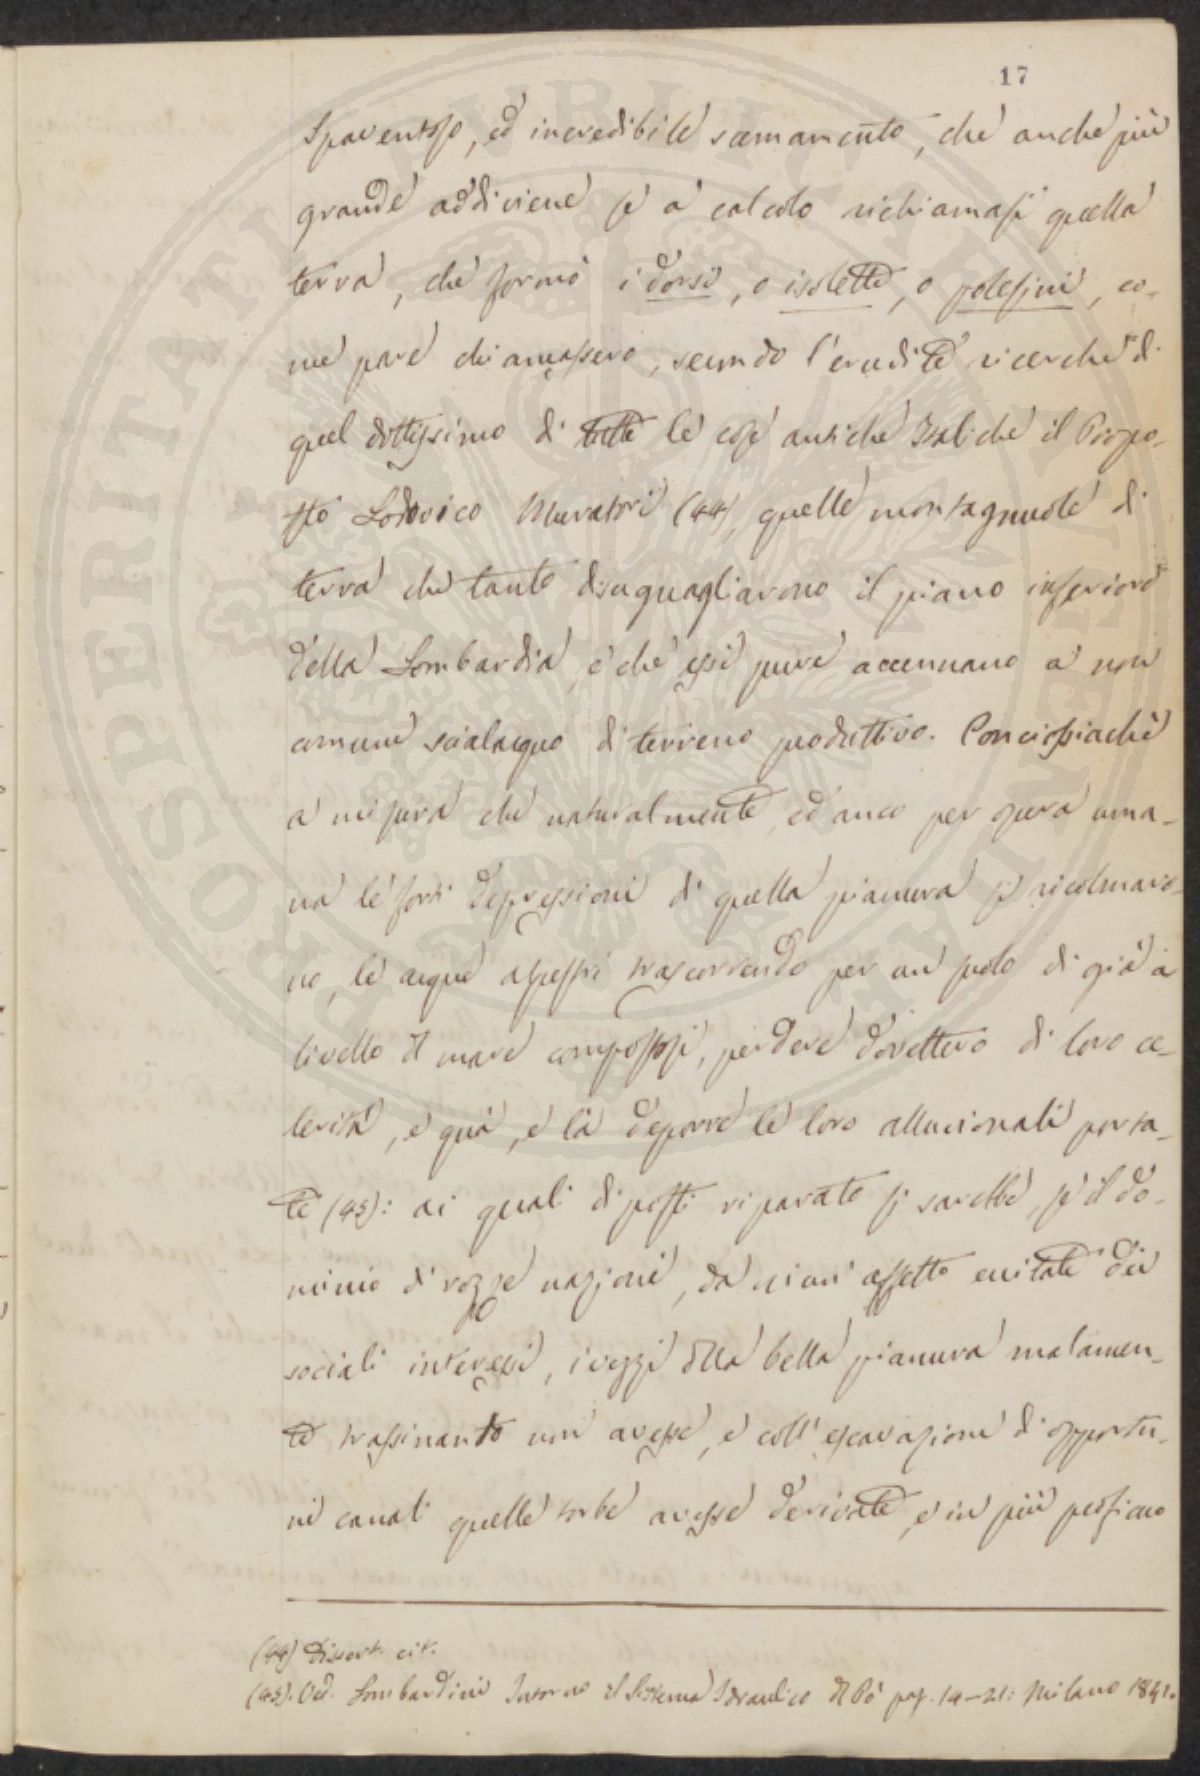 17
spaventoso, ed incredibile scemamento, che anche più
grande addiviene se a calcolo richiamasi quella
terra, che formò i dorsi, o isolette, o polesini, co-
me pare chiamassero, secondo l'erudite ricerche di
quel dottissimo di tutte le cose antiche Italiche il Propo-
sto Lodovico Muratori (44), quelle montagnuole di
terra che tanto disuguagliarono il piano inferiore
della Lombardia, e che essi pure accennano a non
comune scialacquo di terreno produttivo. Conciossiachè
a misura che naturalmente, ed anco per opera uma-
na le forti depressioni di quella pianura si ricolmaro-
no, le acque alpestri trascorrendo per un suolo di già a
livello del mare compostosi, perdere dovettero di loro ce-
lerità, e quà, e là deporre le loro alluvionali porta-
te (45): ai quali disposti riparato si sarebbe, se il do-
minio di rozze nazioni, da niun affetto eccitate dei
sociali interessi, i vezzi della bella pianura malamen-
te trassinando non avesse, e coll'escavazione di opportu-
ni canali quelle torbe avesse derivate, e in più prossimo
(44) Dissert. cit.
(45). Ved. Lombardini Intorno al Sistema Idraulico del Pò pag. 14-21: Milano 1841.